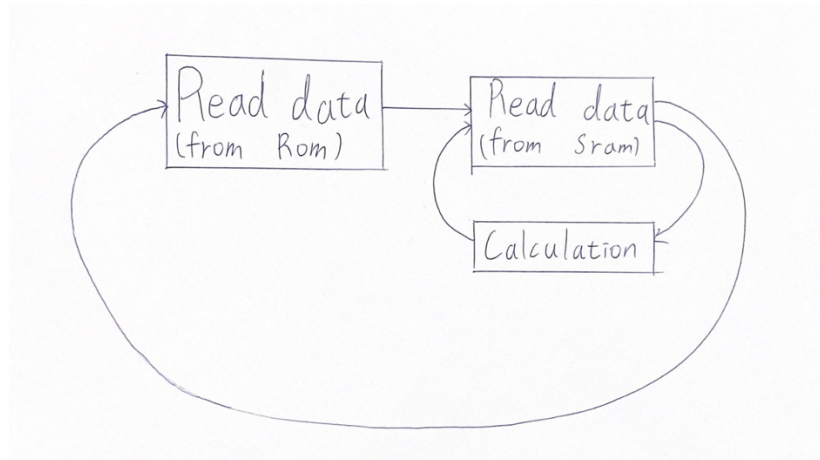 Read data
(from Rom)
Read data
(from Sram)
Calculation